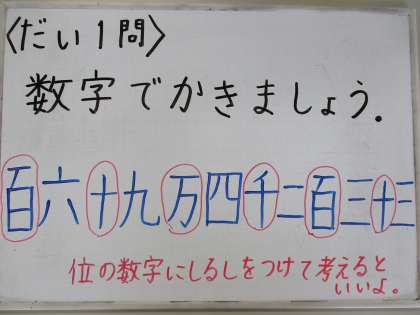 〈だい1問〉
数字でかきましょう.
百六十九万四千二百三十三
位の数字にしるしをつけて考えると
いいよ。